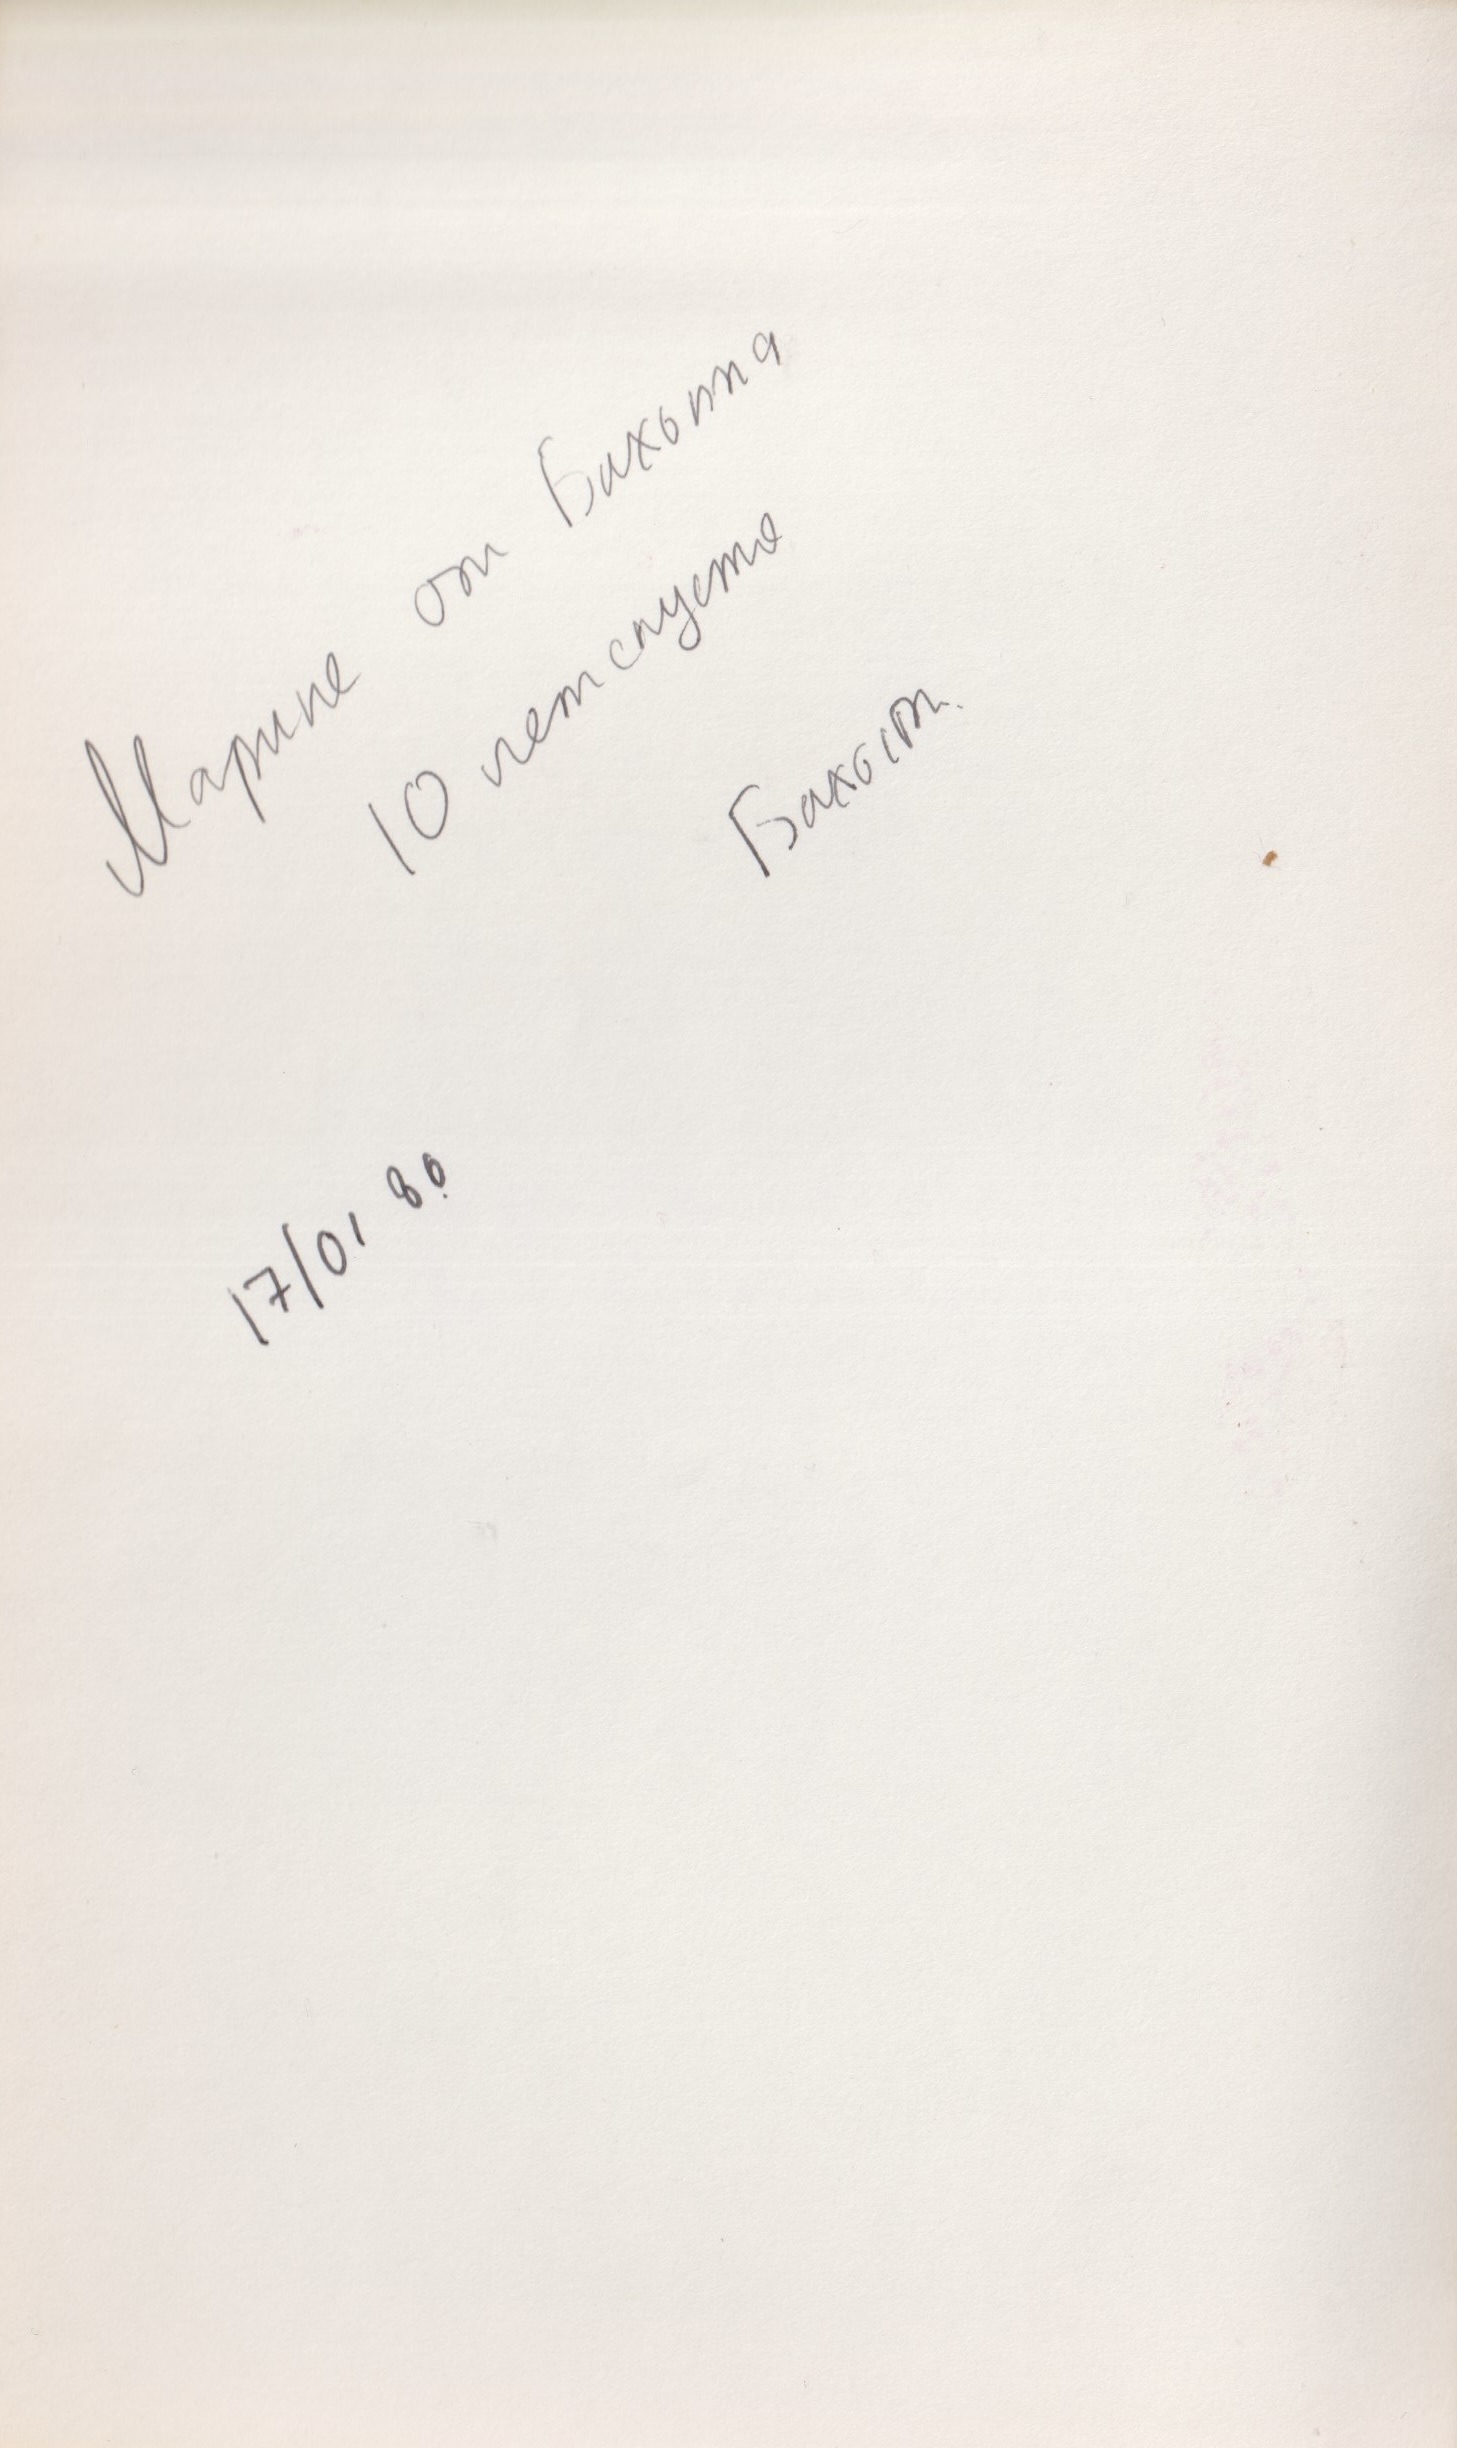 Марине от Бахыта
10 лет спустя
Бахыт.
17/01 80.